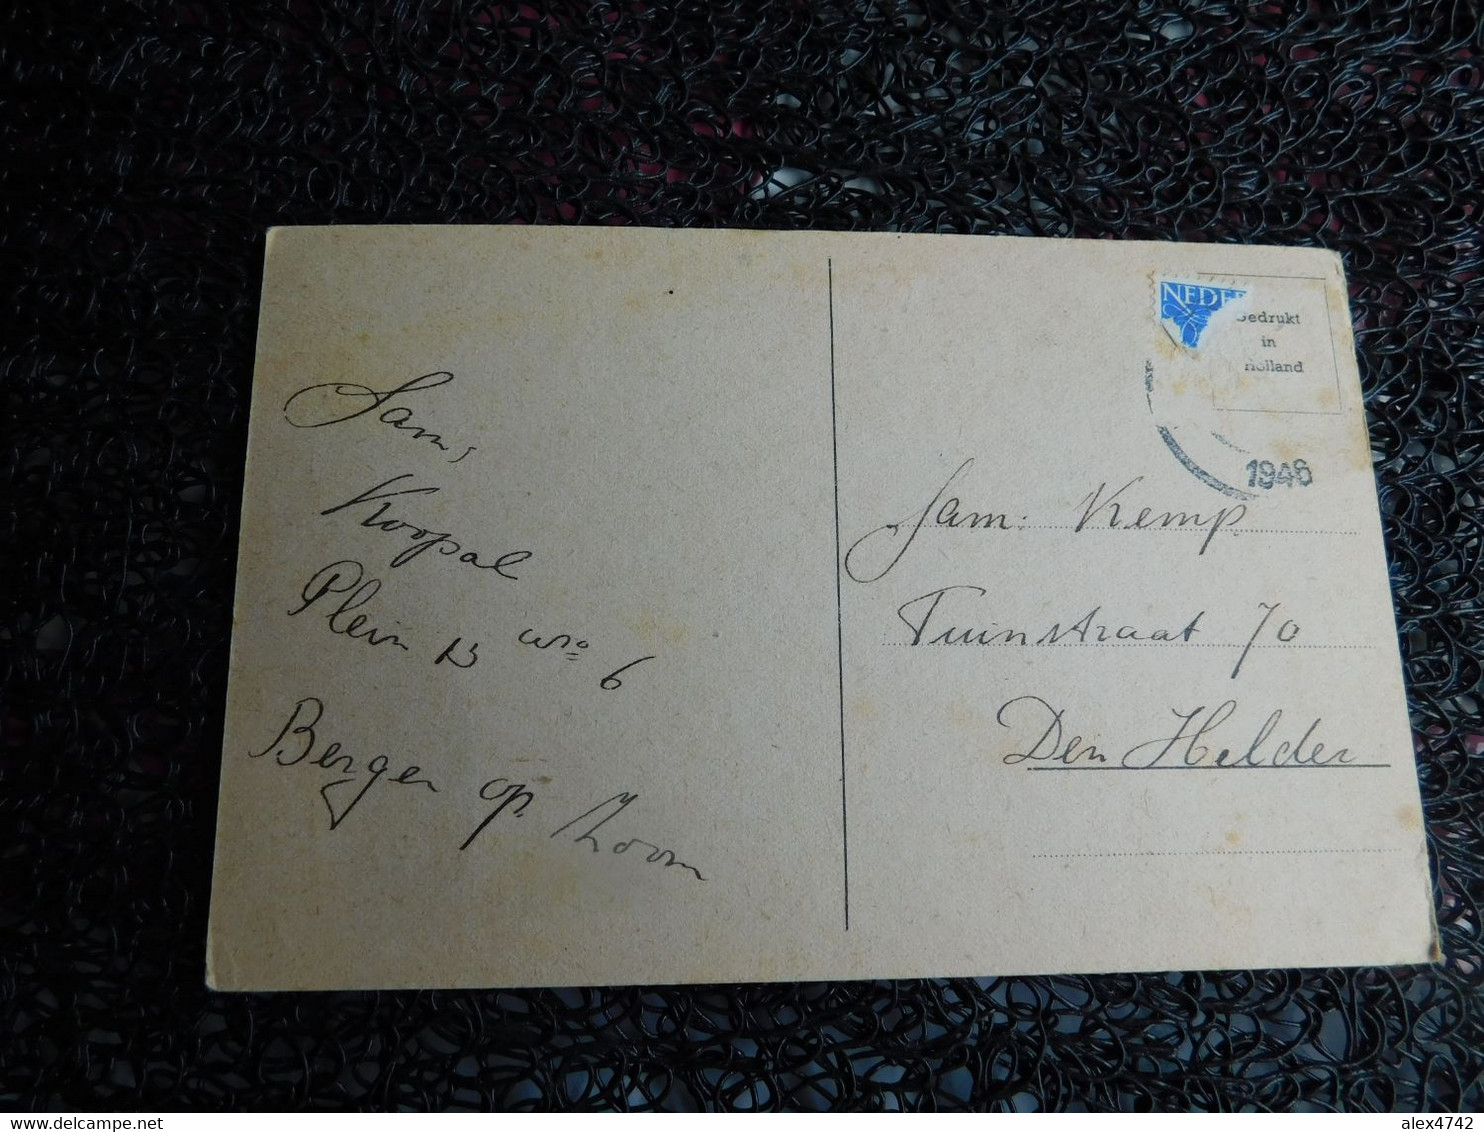 Fam,
Koopal
Plein 13 wno 6
Bergen op Zoom
NEDE
Gedrukt
in
Holland
1946
Fam. Kemp
Tuinstraat 70
Den Helder
alex4742